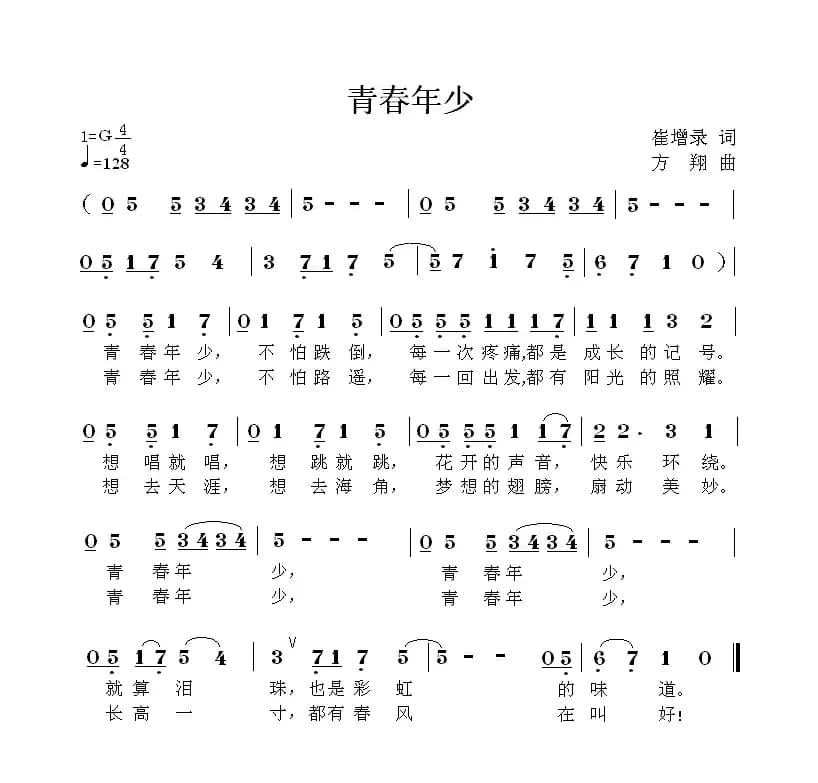 青春年少
1=G 4/4
崔增录 词
♩=128
方 翔 曲
( 0 5 5 3 4 3 4 | 5 - - - | 0 5 5 3 4 3 4 | 5 - - - |
0 5 1 7 5 4 | 3 7 1 7 5 | 5 7 1 7 5 | 6 7 1 0 ) |
0 5 5 1 7 | 0 1 7 1 5 | 0 5 5 5 1 1 1 7 | 1 1 1 3 2 |
青 春年 少， 不 怕跌 倒， 每一次疼痛,都是 成长 的记 号。
青 春年 少， 不 怕路 遥， 每一回出发,都有 阳光 的照 耀。
0 5 5 1 7 | 0 1 7 1 5 | 0 5 5 5 1 1 7 | 2 2· 3 1 |
想 唱就 唱， 想 跳就 跳， 花开的声音， 快乐 环 绕。
想 去天 涯， 想 去海 角， 梦想的翅膀， 扇动 美 妙。
0 5 5 3 4 3 4 | 5 - - - | 0 5 5 3 4 3 4 | 5 - - - |
青 春年 少， 青 春年 少，
青 春年 少， 青 春年 少，
0 5 1 7 5 4 | 3 ∨ 7 1 7 5 | 5 - - 0 5 | 6 7 1 0 ‖
就算泪 珠，也是彩 虹 的味 道。
长高一 寸，都有春 风 在叫 好!